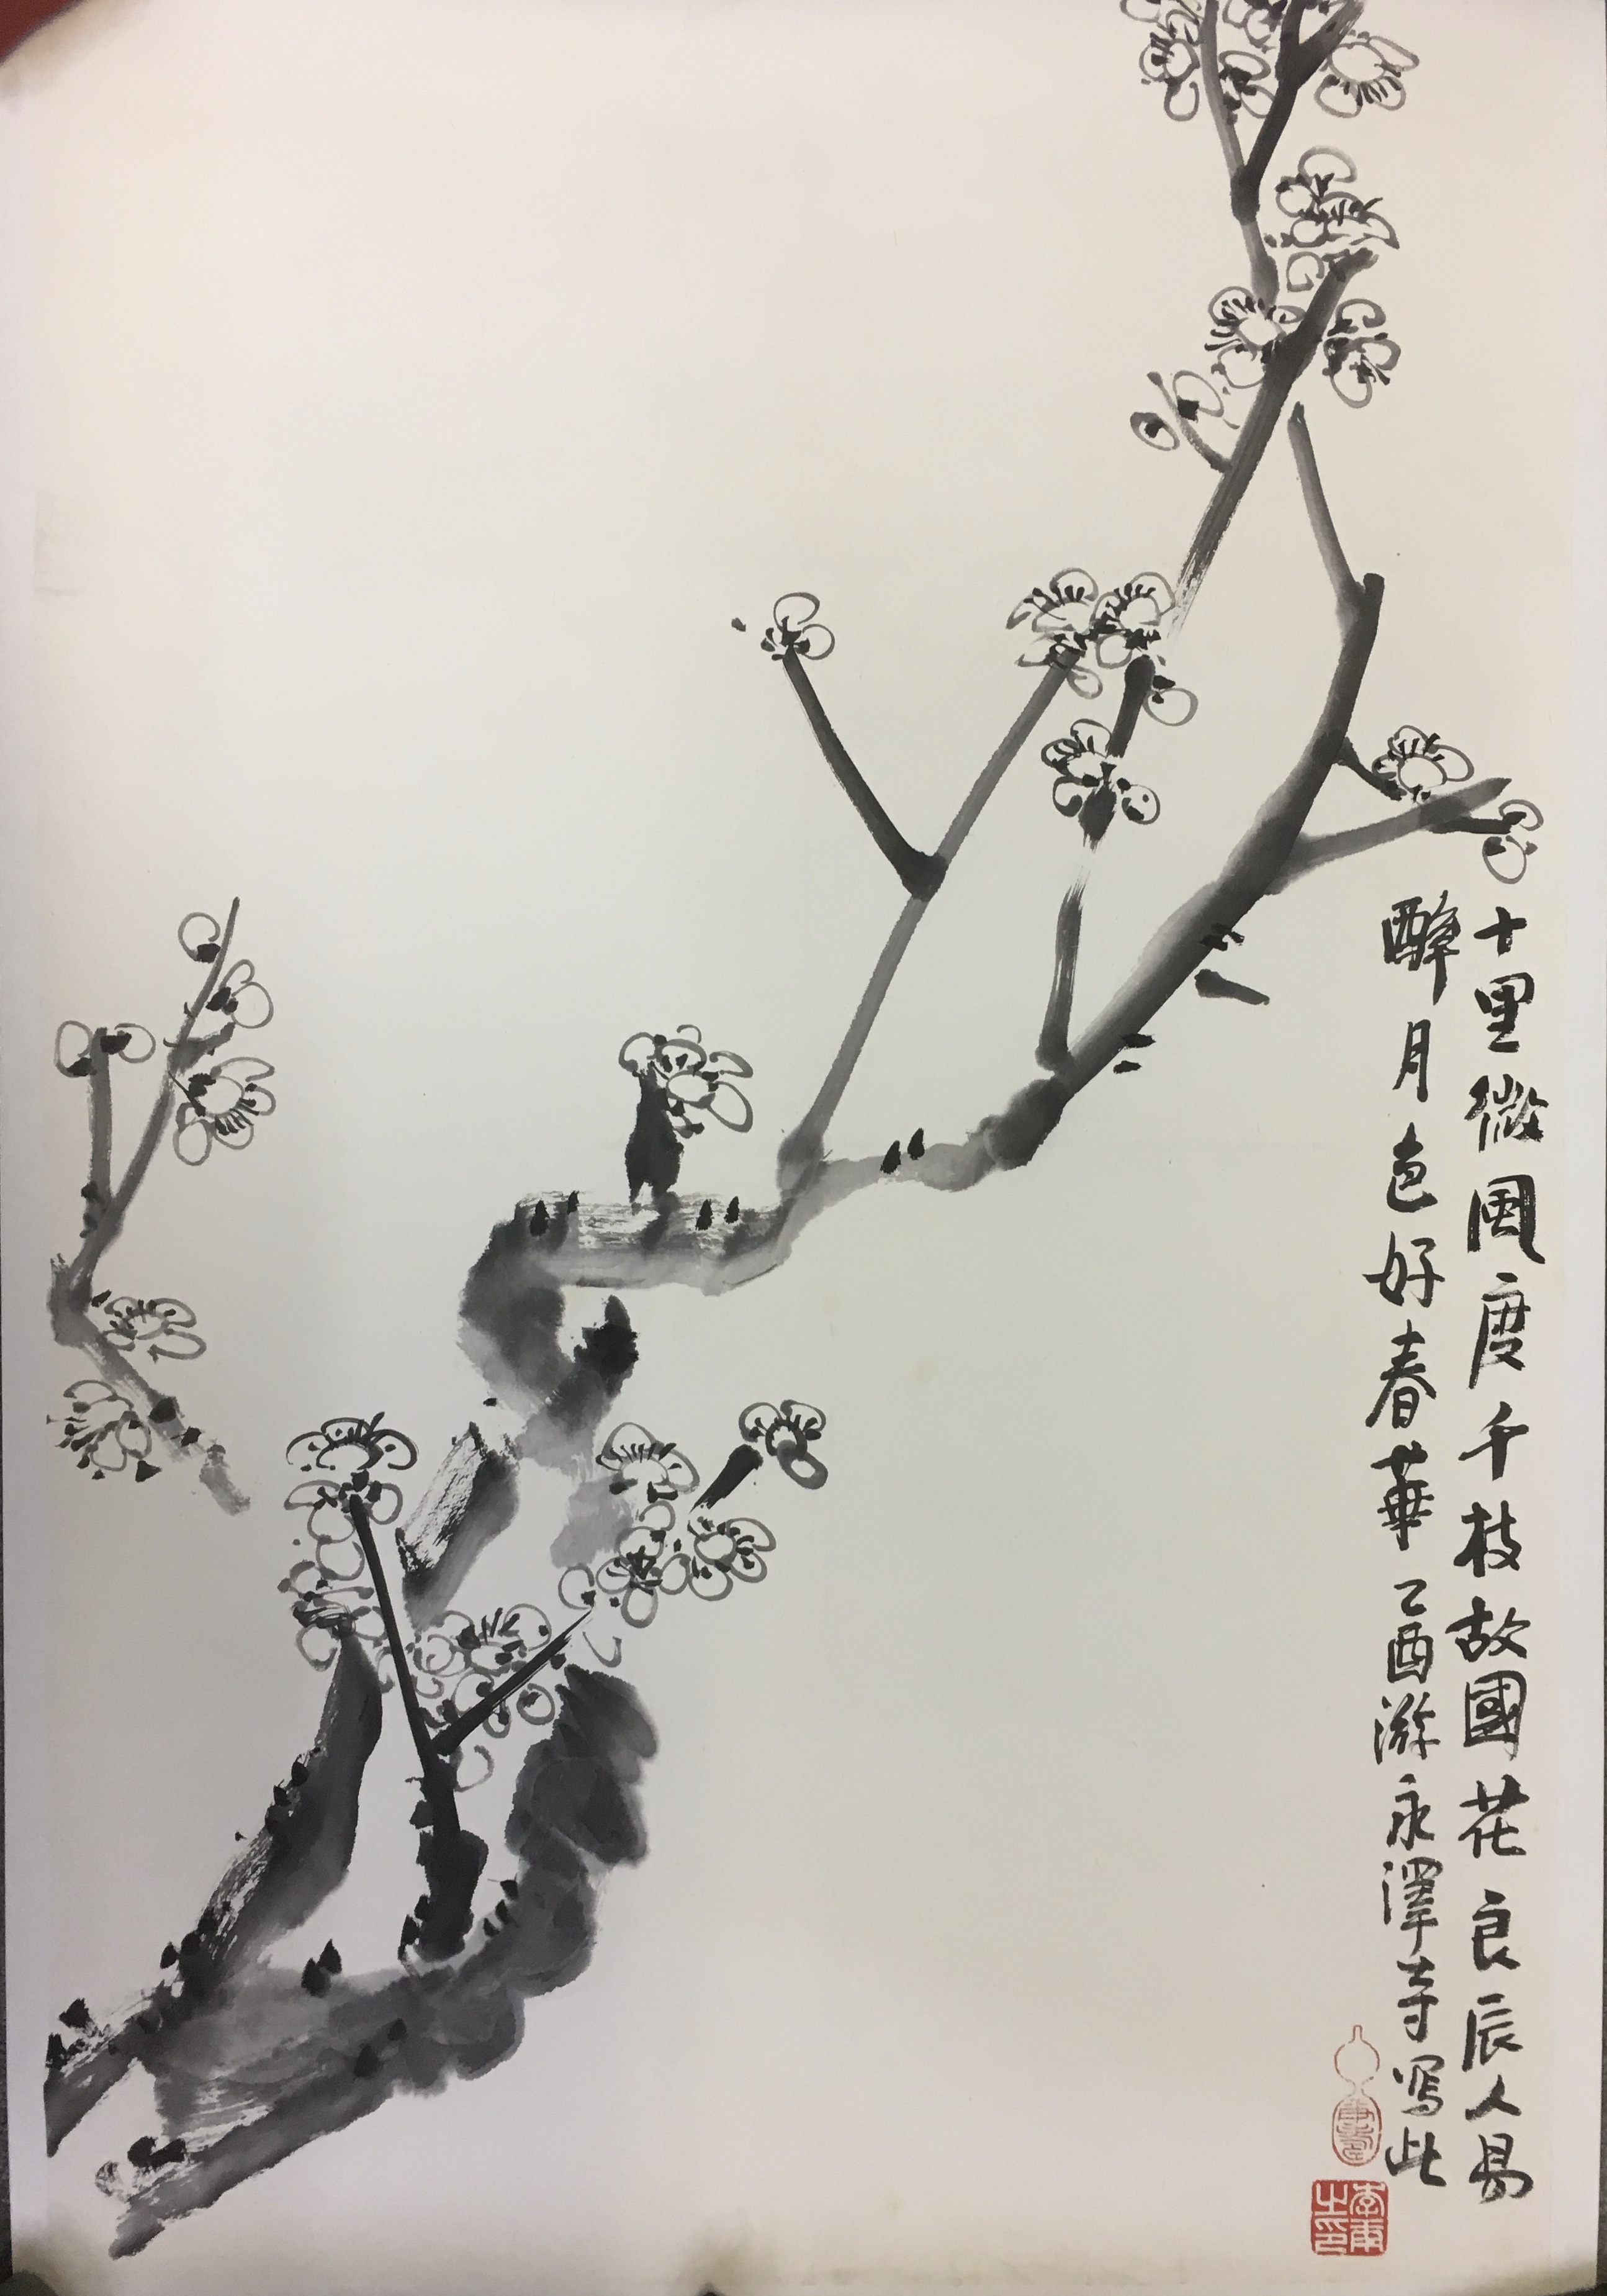 十里微風度千枝故國花良辰人易
醉月色好春華乙酉游永澤寺寫此